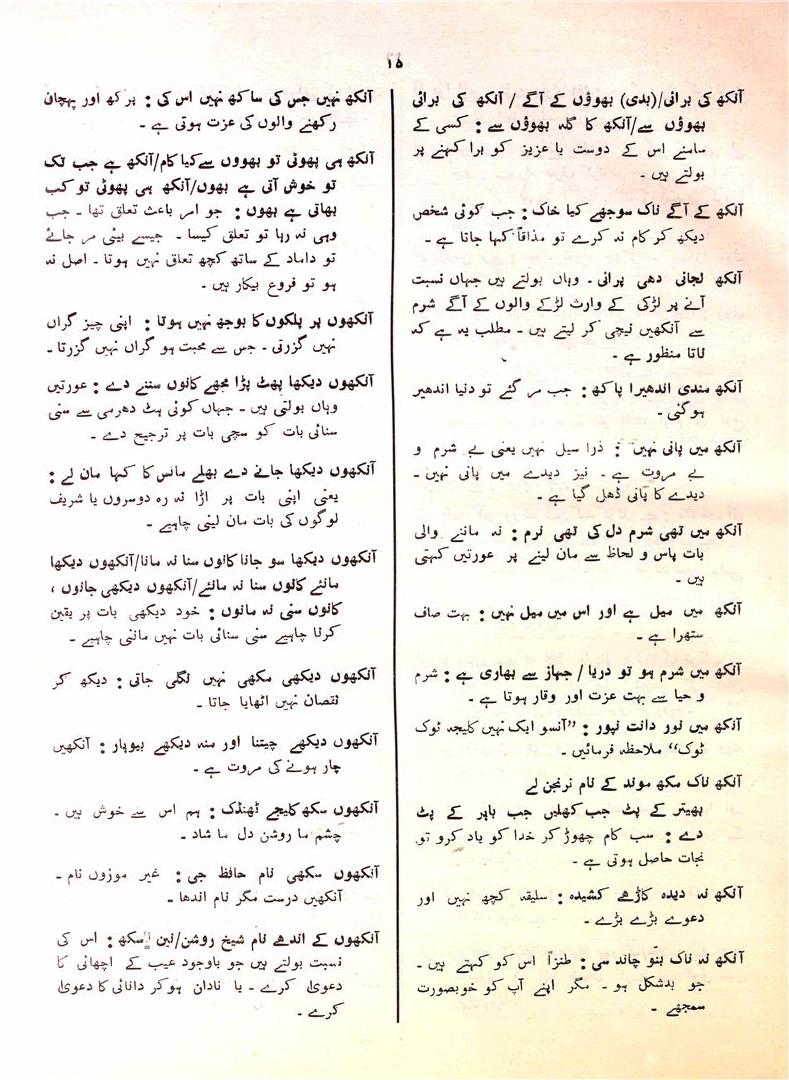 ۱۵
آنکھ کی برائی/(بدی) بھوؤں کے آگے / آنکھ کی برائی
بھوؤں سے/آنکھ کا گلہ بھوؤں سے : کسی کے
سامنے اس کے دوست یا عزیز کو برا کہنے پر
بولتے ہیں ۔
آنکھ کے آگے ناک سوجھے کیا خاک : جب کوئی شخص
دیکھ کر کام نہ کرے تو مذاقاً کہا جاتا ہے ۔
آنکھ لجانی دھی پرانی ۔ وہاں بولتے ہیں جہاں نسبت
آنے پر لڑکی کے وارث لڑکے والوں کے آگے شرم
سے آنکھیں نیچی کر لیتے ہیں ۔ مطلب یہ ہے کہ
ناتا منظور ہے ۔
آنکھ مندی اندھیرا پاکھ : جب مر گئے تو دنیا اندھیر
ہوگئی ۔
آنکھ میں پانی نہیں : ذرا سیل نہیں یعنی بے شرم و
بے مروت ہے ۔ نیز دیدے میں پانی نہیں ۔
دیدے کا پانی ڈھل گیا ہے ۔
آنکھ میں تھی شرم دل کی تھی نرم : نہ ماننے والی
بات پاس و لحاظ سے مان لینے پر عورتیں کہتی
ہیں ۔
آنکھ میں میل ہے اور اس میں میل نہیں : بہت صاف
ستھرا ہے ۔
آنکھ میں شرم ہو تو دریا / جہاز سے بھاری ہے : شرم
و حیا سے بہت عزت اور وقار ہوتا ہے ۔
آنکھ میں نور دانت نپور : ”آنسو ایک نہیں کلیجہ ٹوک
ٹوک“ ملاحظہ فرمائیں ۔
آنکھ ناک مکھ موند کے نام نرنجن لے
بھیتر کے پٹ جب کھلیں جب باہر کے پٹ
دے : سب کام چھوڑ کر خدا کو یاد کرو تو
نجات حاصل ہوتی ہے ۔
آنکھ نہ دیدہ کاڑھے کشیدہ : سلیقہ کچھ نہیں اور
دعوے بڑے بڑے ۔
آنکھ نہ ناک بنو چاند سی : طنزاً اس کو کہتے ہیں ۔
جو بدشکل ہو ۔ مگر اپنے آپ کو خوبصورت
سمجھے ۔
آنکھ نہیں جس کی ساکھ نہیں اس کی : پرکھ اور پہچان
رکھنے والوں کی عزت ہوتی ہے ۔
آنکھ ہی پھوٹی تو بھووں سے کیا کام/آنکھ ہے جب تک
تو خوش آتی ہے بھوں/آنکھ ہی پھوٹی تو کب
بھاتی ہے بھوں : جو امر باعث تعلق تھا ۔ جب
وہی نہ رہا تو تعلق کیسا ۔ جیسے بیٹی مر جائے
تو داماد کے ساتھ کچھ تعلق نہیں ہوتا ۔ اصل نہ
ہو تو فروع بیکار ہیں ۔
آنکھوں پر پلکوں کا بوجھ نہیں ہوتا : اپنی چیز گراں
نہیں گزرتی ۔ جس سے محبت ہو گراں نہیں گزرتا ۔
آنکھوں دیکھا پھٹ پڑا مجھے کانوں سننے دے : عورتیں
وہاں بولتی ہیں ۔ جہاں کوئی ہٹ دھرمی سے سنی
سنائی بات کو سچی بات پر ترجیح دے ۔
آنکھوں دیکھا جانے دے بھلے مانس کا کہا مان لے :
یعنی اپنی بات پر اڑا نہ رہ دوسروں یا شریف
لوگوں کی بات مان لینی چاہیے ۔
آنکھوں دیکھا سو جانا کانوں سنا نہ مانا/آنکھوں دیکھا
مانئے کانوں سنا نہ مانئے/آنکھوں دیکھی جانوں ،
کانوں سنی نہ مانوں : خود دیکھی بات پر یقین
کرنا چاہیے سنی سنائی بات نہیں ماننی چاہیے ۔
آنکھوں دیکھی مکھی نہیں نگلی جاتی : دیکھ کر
نقصان نہیں اٹھایا جاتا ۔
آنکھوں دیکھے چیتنا اور منہ دیکھے بیوپار : آنکھیں
چار ہونے کی مروت ہے ۔
آنکھوں سکھ کلیجے ٹھنڈک : ہم اس سے خوش ہیں ۔
چشم ما روشن دل ما شاد ۔
آنکھوں سکھی نام حافظ جی : غیر موزوں نام ۔
آنکھیں درست مگر نام اندھا ۔
آنکھوں کے اندھے نام شیخ روشن/نین سکھ : اس کی
نسبت بولتے ہیں جو باوجود عیب کے اچھائی کا
دعویٰ کرے ۔ یا نادان ہوکر دانائی کا دعویٰ
کرے ۔